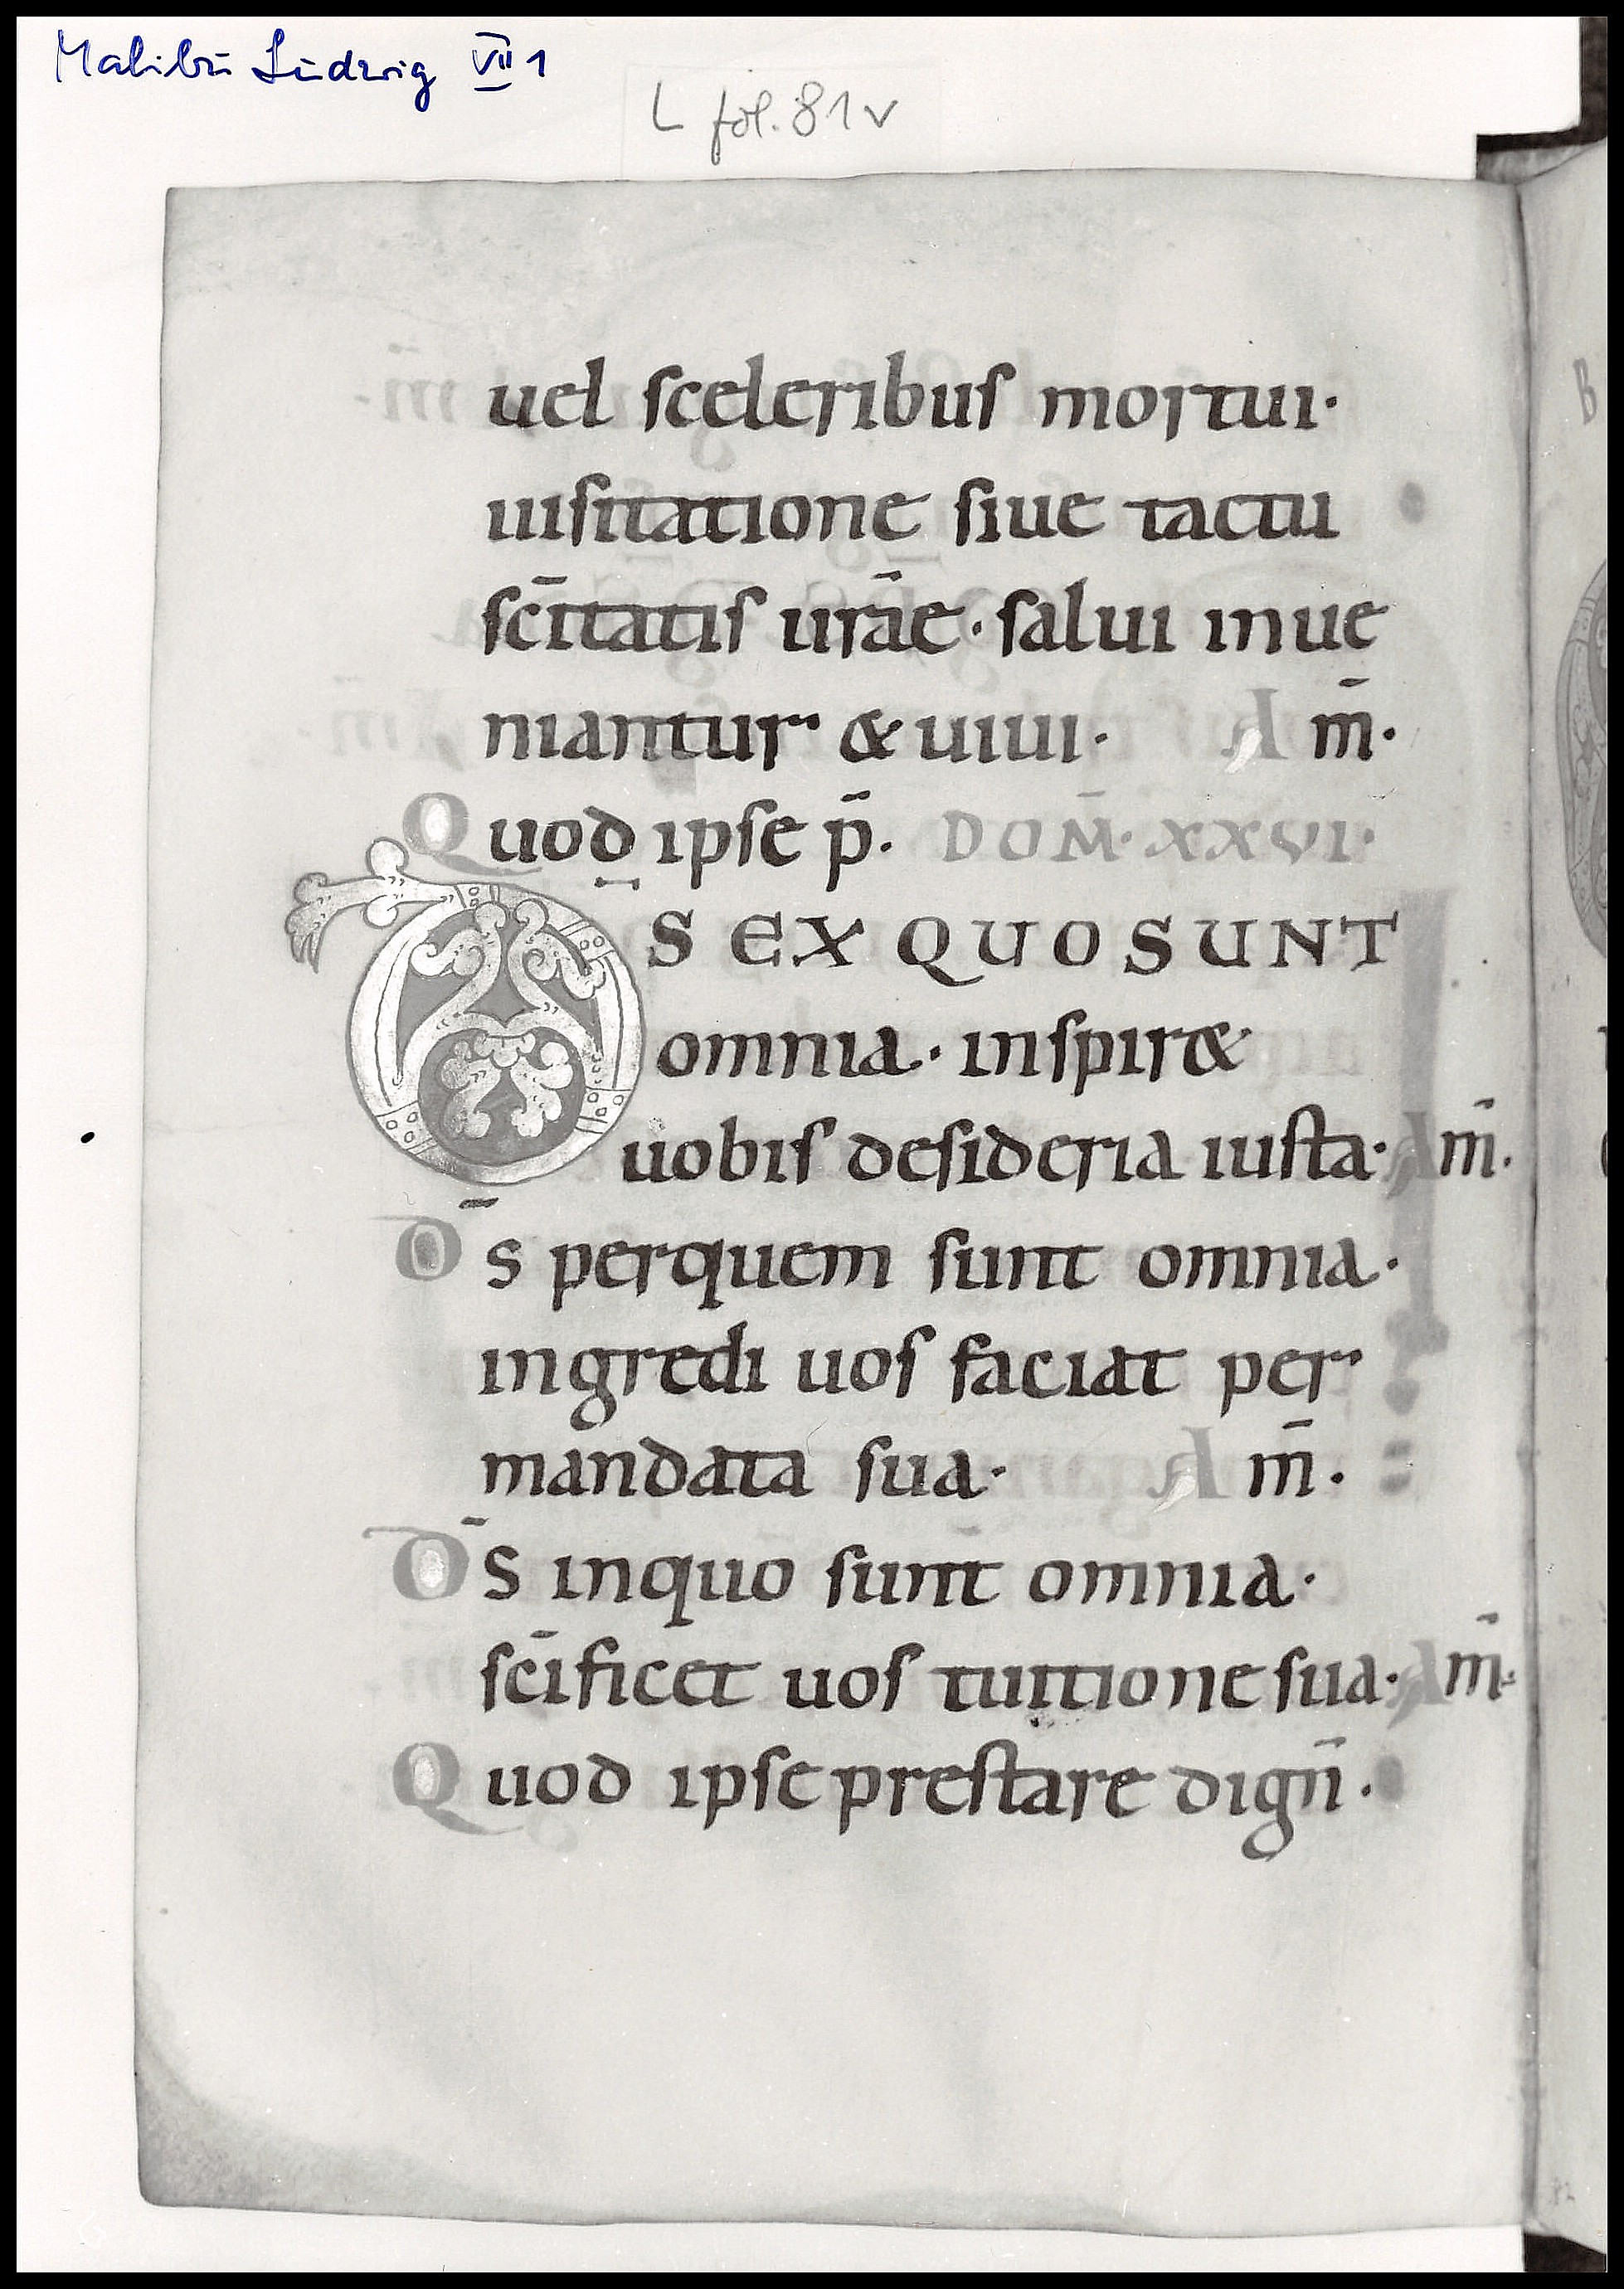 Malibu Ludwig VII 1
L fol. 81v
uel sceleribus mortui·
uisitatione siue tactu
sc̄itatis ur̄ae· salui inue
niantur & uiui· Am̄·
Quod ipse p̄· DOM̄· XXVI·
D̄S EX QUO SUNT
omnia· inspir&
uobis desideria iusta· Am̄·
D̄s perquem sunt omnia·
ingredi uos faciat per
mandata sua· Am̄·
D̄s inquo sunt omnia·
sc̄ificet uos tuitione sua· Am̄·
Quod ipse prestare dign̄·
B
82